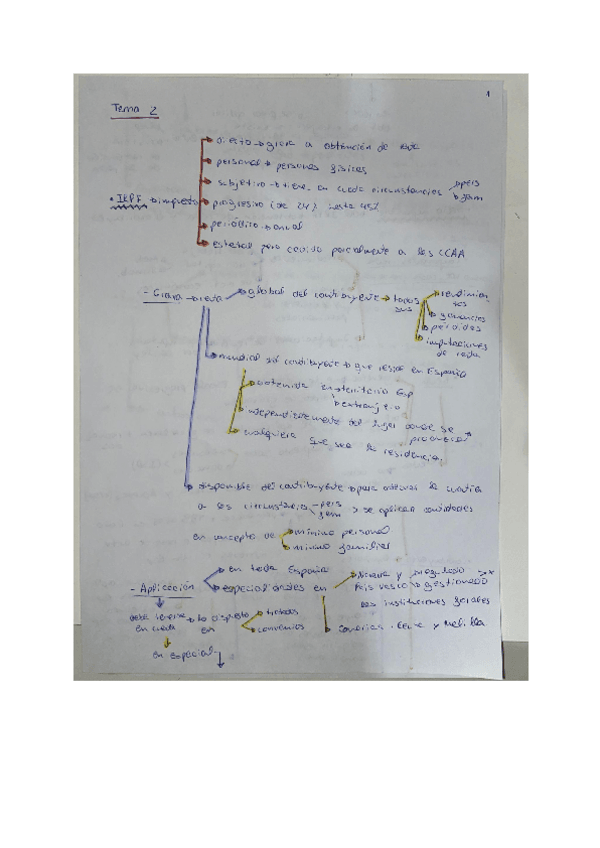 1
Tema 2
directo → grava a obtención de renta
personal → personas físicas
subjetivo → tiene en cuenta circunstancias → pers
→ fam
• IRPF → impuesto progresivo (de 24% hasta 45%
periódico → anual
estatal pero cedido parcialmente a las CCAA
- Grava → renta → global del contribuyente → todos sus → rendimientos
→ ganancias
→ pérdidas
→ imputaciones de renta
mundial del contribuyente → que reside en España
→ obtenida en → territorio esp
→ extranjero
→ independientemente del lugar donde se
→ cualquiera que sea la residencia
disponible del contribuyente → para adecuar la cuantía
a las circunstancias pers
fam > se aplican cantidades
en concepto de → mínimo personal
→ mínimo familiar
- Aplicación → en toda España
→ especialidades en → Navarra y País vasco → regulado
→ gestionado
las instituciones forales
→ Canarias, Ceuta y Melilla
debe tenerse en cuenta → lo dispuesto en → tratados
→ convenios
en especial ↓